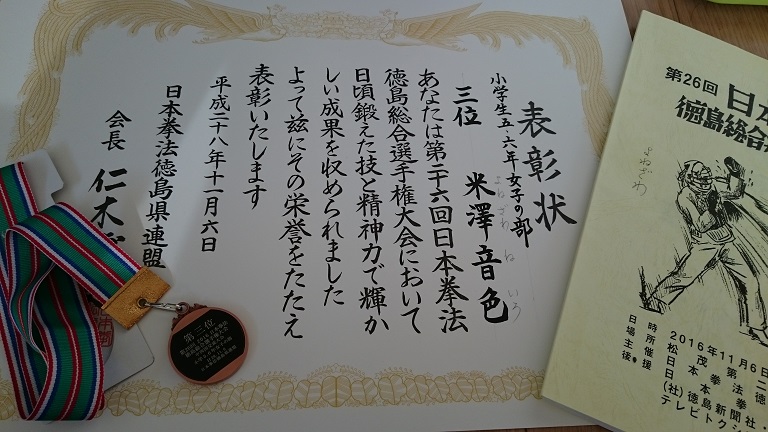 表彰状
小学生五・六年女子の部
三位 米澤音色
よねざわ ねいろ
あなたは第二十六回日本拳法
徳島総合選手権大会において
日頃鍛えた技と精神力で輝か
しい成果を収められました
よって茲にその栄誉をたたえ
表彰いたします
平成二十八年十一月六日
日本拳法徳島県連盟
会長 仁木
第三位
第26回 日本
徳島総合
よねざわ
日時 2016年11月6日
場所 松茂第二
主催 日本拳法徳
後援 日本拳
(社)徳島新聞社・
テレビトクシ